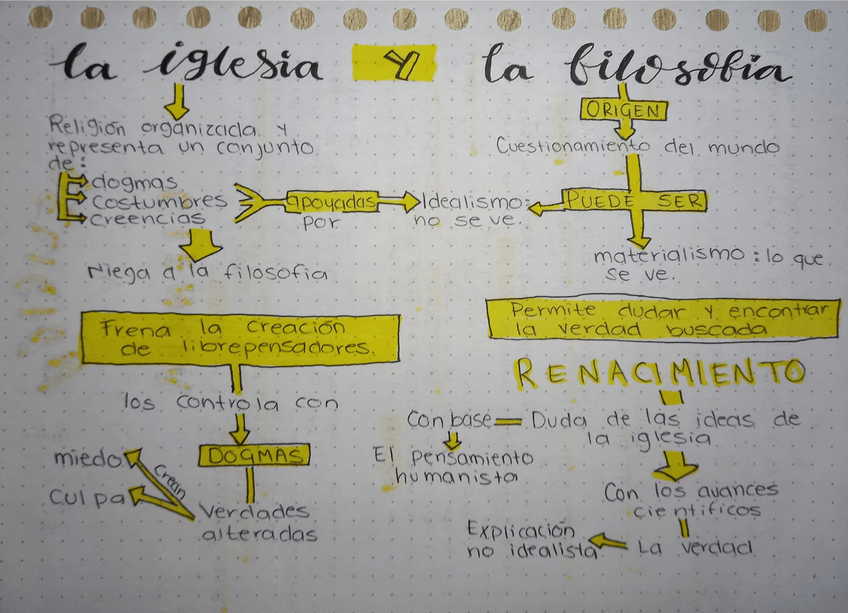 la iglesia y la filosofía
Religión organizada y
representa un conjunto
de:
dogmas
costumbres
creencias
apoyadas
por
Idealismo:
no se ve.
Niega a la filosofía
Frena la creación
de librepensadores.
los controla con
DOGMAS
Verdades
alteradas
crean
miedo
culpa
ORIGEN
Cuestionamiento del mundo
PUEDE SER
materialismo: lo que
se ve.
Permite dudar y encontrar
la verdad buscada
RENACIMIENTO
Con base
Duda de las ideas de
la iglesia
El pensamiento
humanista
Con los avances
científicos
La verdad
Explicación
no idealista